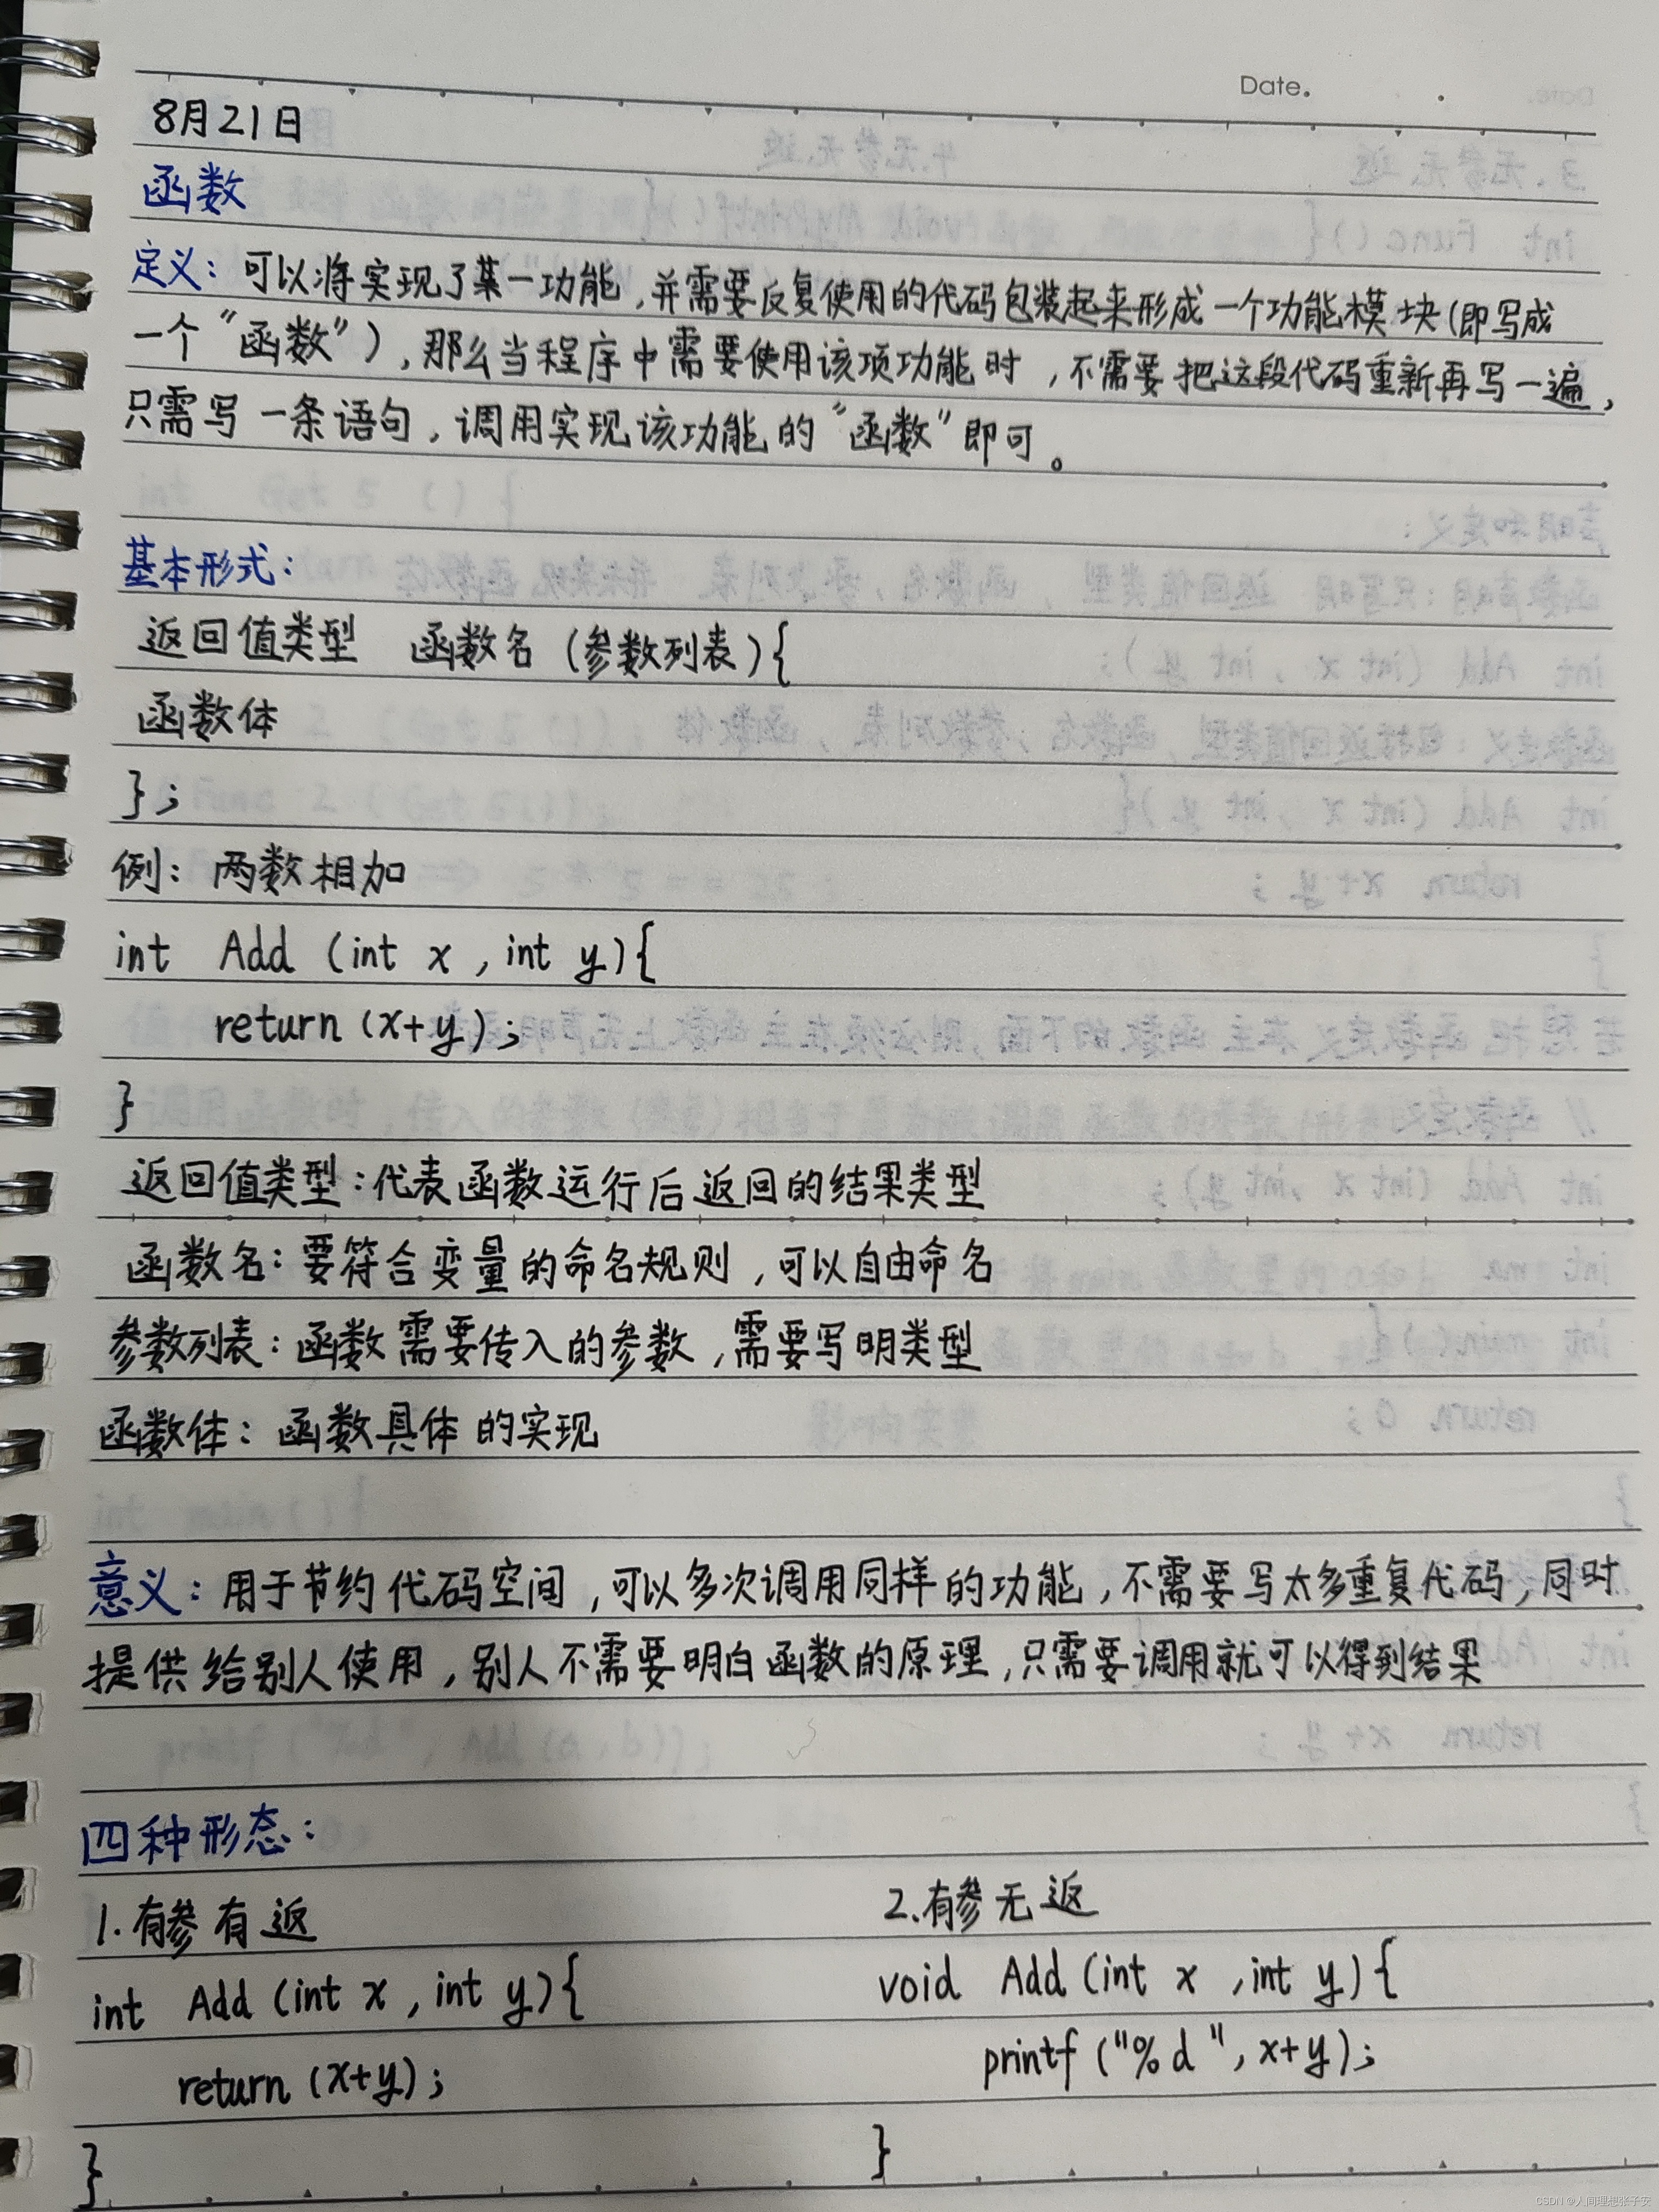 Date.
8月21日
函数
定义：可以将实现了某一功能，并需要反复使用的代码包装起来形成一个功能模块（即写成
一个“函数”），那么当程序中需要使用该项功能时，不需要把这段代码重新再写一遍，
只需写一条语句，调用实现该功能的“函数”即可。
基本形式：
返回值类型 函数名（参数列表）{
函数体
}；
例：两数相加
int Add (int x , int y){
return (x+y);
}
返回值类型：代表函数运行后返回的结果类型
函数名：要符合变量的命名规则，可以自由命名
参数列表：函数需要传入的参数，需要写明类型
函数体：函数具体的实现
意义：用于节约代码空间，可以多次调用同样的功能，不需要写太多重复代码，同时
提供给别人使用，别人不需要明白函数的原理，只需要调用就可以得到结果
四种形态：
1.有参有返
int Add (int x , int y){
return (x+y);
}
2.有参无返
void Add (int x ,int y){
printf ("%d", x+y);
}
CSDN @人间理想张子安